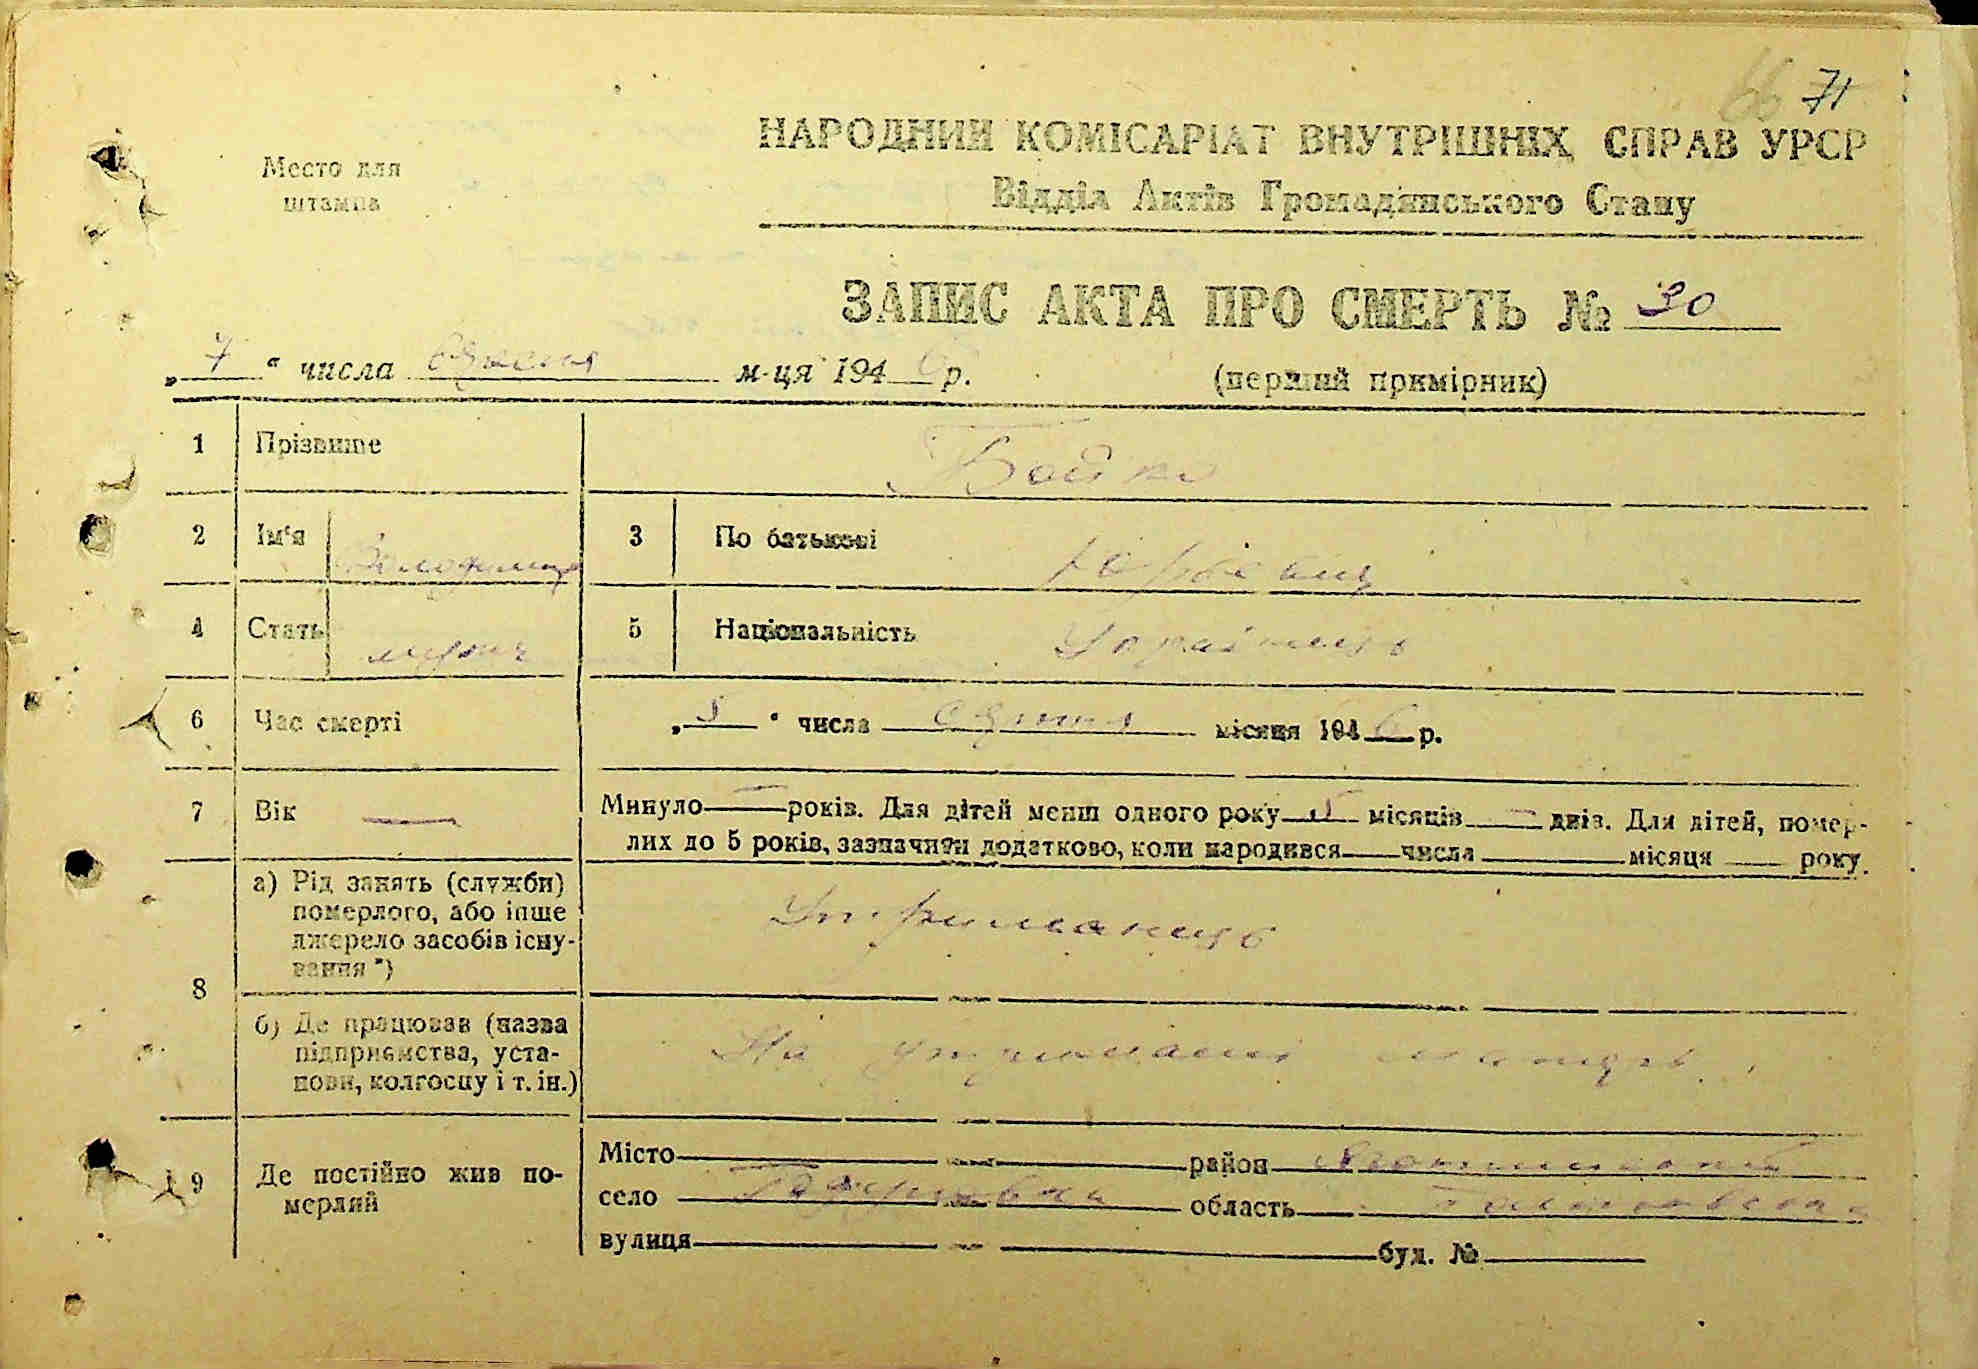 66 71
Место для
штампа
НАРОДНИЙ КОМІСАРІАТ ВНУТРІШНІХ СПРАВ УРСР
Відділ Актів Громадянського Стану
ЗАПИС АКТА ПРО СМЕРТЬ № 30
„ 7 “ числа м-ця 194 6 р.
(перший примірник)
1 Прізвище Бойко
2 Ім'я Володимир 3 По батькові
4 Стать 5 Національність Українець
6 Час смерті „ 5 “ числа серпня місяця 194 6 р.
7 Вік — Минуло — років. Для дітей менш одного року 5 місяців — днів. Для дітей, помер-
лих до 5 років, зазначити додатково, коли народився числа місяця року.
8
а) Рід занять (служби)
померлого, або інше
джерело засобів існу-
вання *)
Утриманець
б) Де працював (назва
підприємства, уста-
нови, колгоспу і т. ін.)
На утриманні матері
9 Де постійно жив по-
мерлий
Місто район
село область
вулиця буд. №